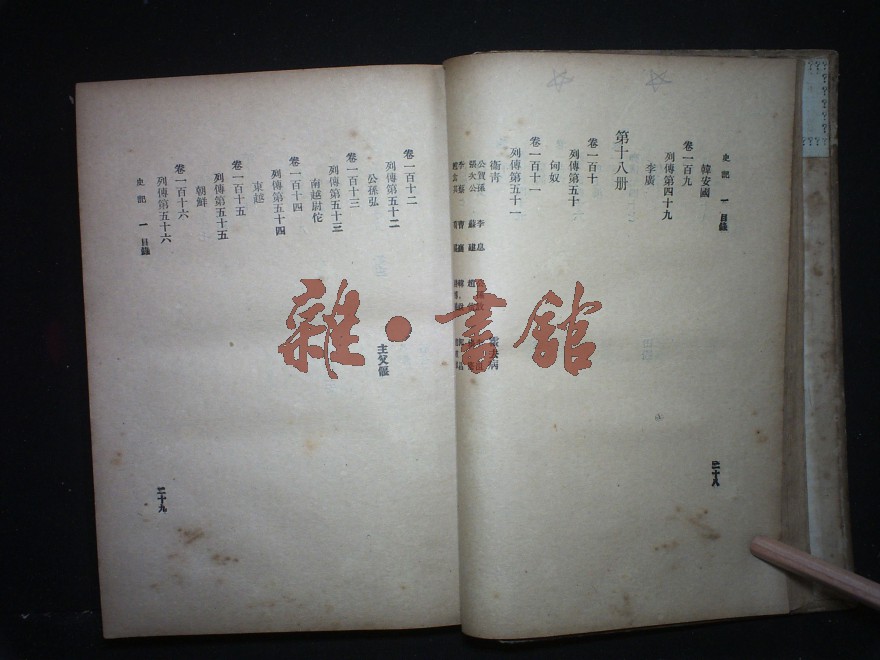 史記 一 目錄
韓安國
卷一百九
列傳第四十九
李廣
第十八册
卷一百十
列傳第五十
匈奴
卷一百十一
列傳第五十一
衛青 霍去病
公孫賀 李息
張次公 蘇建 趙
李蔡 曹 韓
二十八
卷一百十二
列傳第五十二
公孫弘 主父偃
卷一百十三
列傳第五十三
南越尉佗
卷一百十四
列傳第五十四
東越
卷一百十五
列傳第五十五
朝鮮
卷一百十六
列傳第五十六
史記 一 目錄
二十九
雜·書館